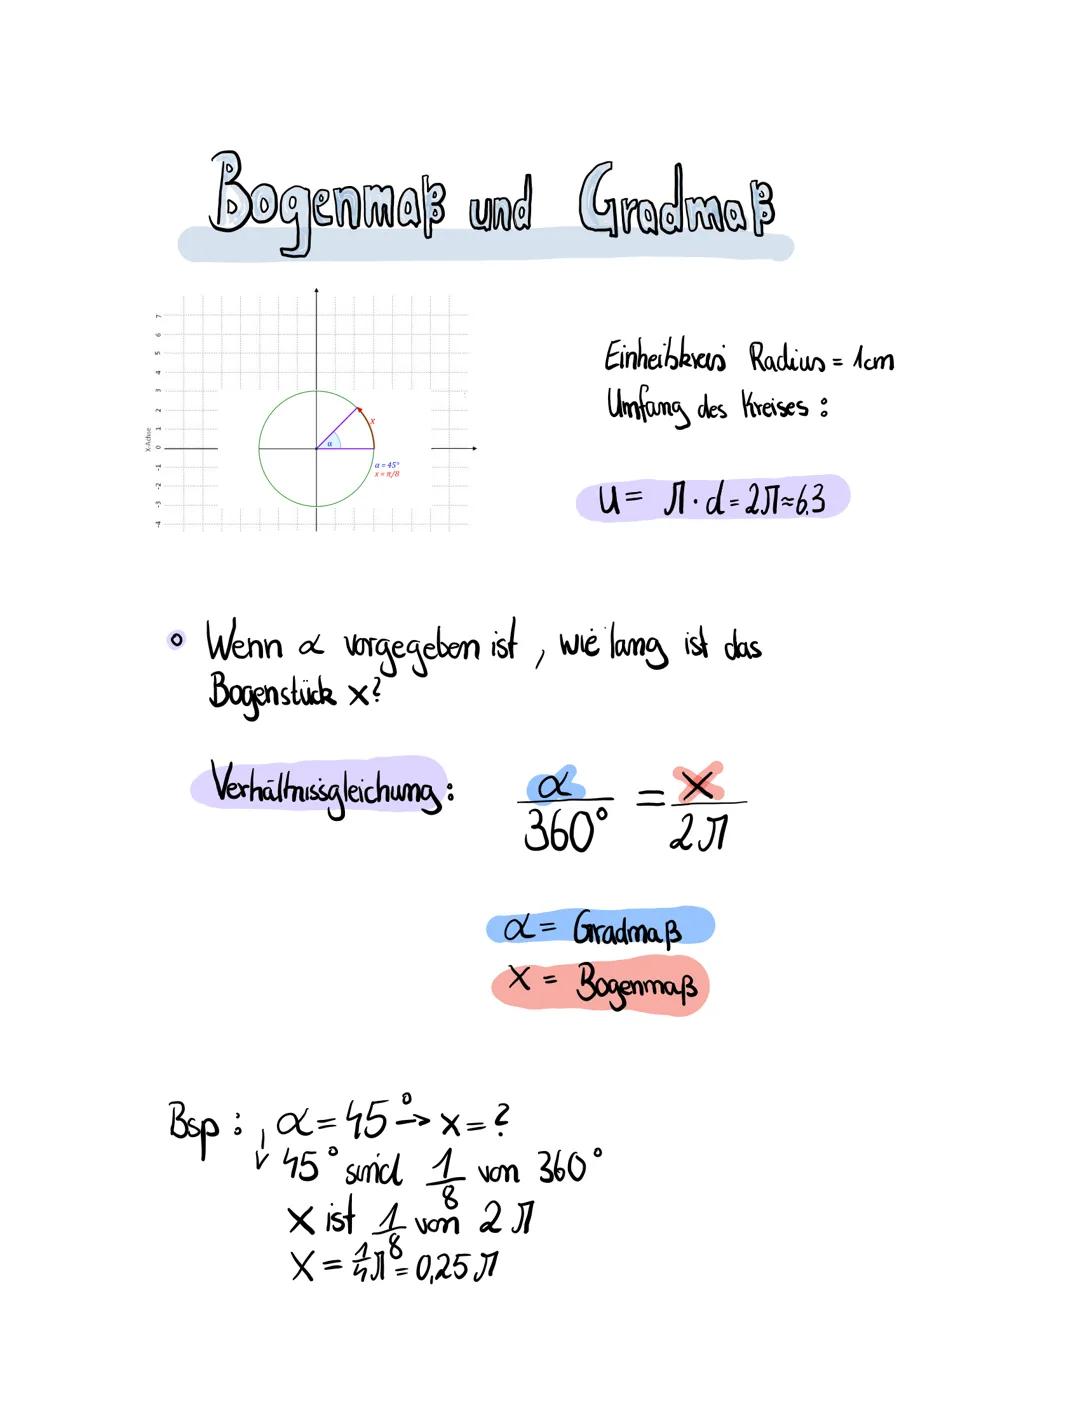 Bogenmaß und Gradmaß
7
6
5
4
3
2
1
0
-1
-2
-3
-4
X-Achse
x
α
α = 45°
x = π/8
Einheitskreis Radius = 1cm
Umfang des Kreises :
U = π · d = 2π ≈ 6,3
Wenn α vorgegeben ist , wie lang ist das
Bogenstück x?
Verhältnissgleichung : α/360° = x/2π
α = Gradmaß
x = Bogenmaß
Bsp : α = 45° → x = ?
↓ 45° sind 1/8 von 360°
x ist 1/8 von 2π
x = 1/4 π = 0,25 π